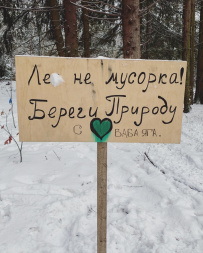 Лес не мусорка!
Береги Природу
С БАБА ЯГА.